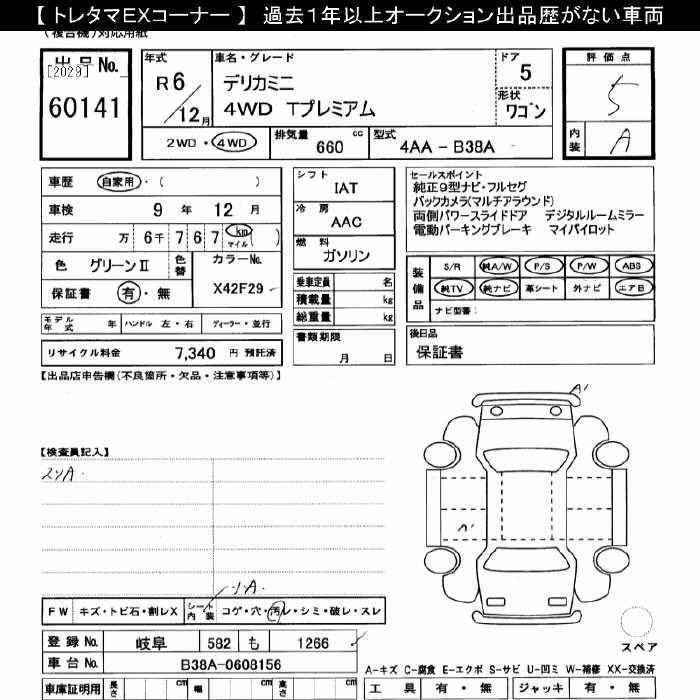 【 トレタマEXコーナー 】 過去1年以上オークション出品歴がない車両
(複合機)対応用紙
出品No.
[2029]
60141
年式
R 6
12月
車名・グレード
デリカミニ
4WD Tプレミアム
ドア
5
形状
ワゴン
評価点
5
内装
A
2WD・4WD
排気量 660 cc
型式 4AA - B38A
車歴 自家用・( )
車検 9年 12月
走行 万 6千 7 6 7 km マイル ( )
色 グリーンⅡ
色替
カラーNo.
X42F29
保証書 有・無
シフト
IAT
冷房
AAC
燃料
ガソリン
乗車定員 名
積載量 kg
総重量 kg
書類期限
月 日
セールスポイント
純正9型ナビ・フルセグ
バックカメラ(マルチアラウンド)
両側パワースライドドア デジタルルームミラー
電動パーキングブレーキ マイパイロット
装備品
S/R 純A/W P/S P/W ABS
純TV 純ナビ 革シート 外ナビ エアB
ナビ型番:
後日品
保証書
モデル年式 年 ハンドル 左・右 ディーラー・並行
リサイクル料金 7,340 円 預託済
【出品店申告欄(不良箇所・欠品・注意事項等)】
【検査員記入】
A'
A'
FW キズ・トビ石・割レX シート内装 コゲ・穴・汚レ・シミ・破レ・スレ
登録No. 岐阜 582 も 1266
車台No. B38A-0608156
車庫証明用 長さ cm 幅 cm 高さ cm
スペア
A-キズ C-腐食 E-エクボ S-サビ U-凹ミ W-補修 XX-交換済
工具 有・無 ジャッキ 有・無